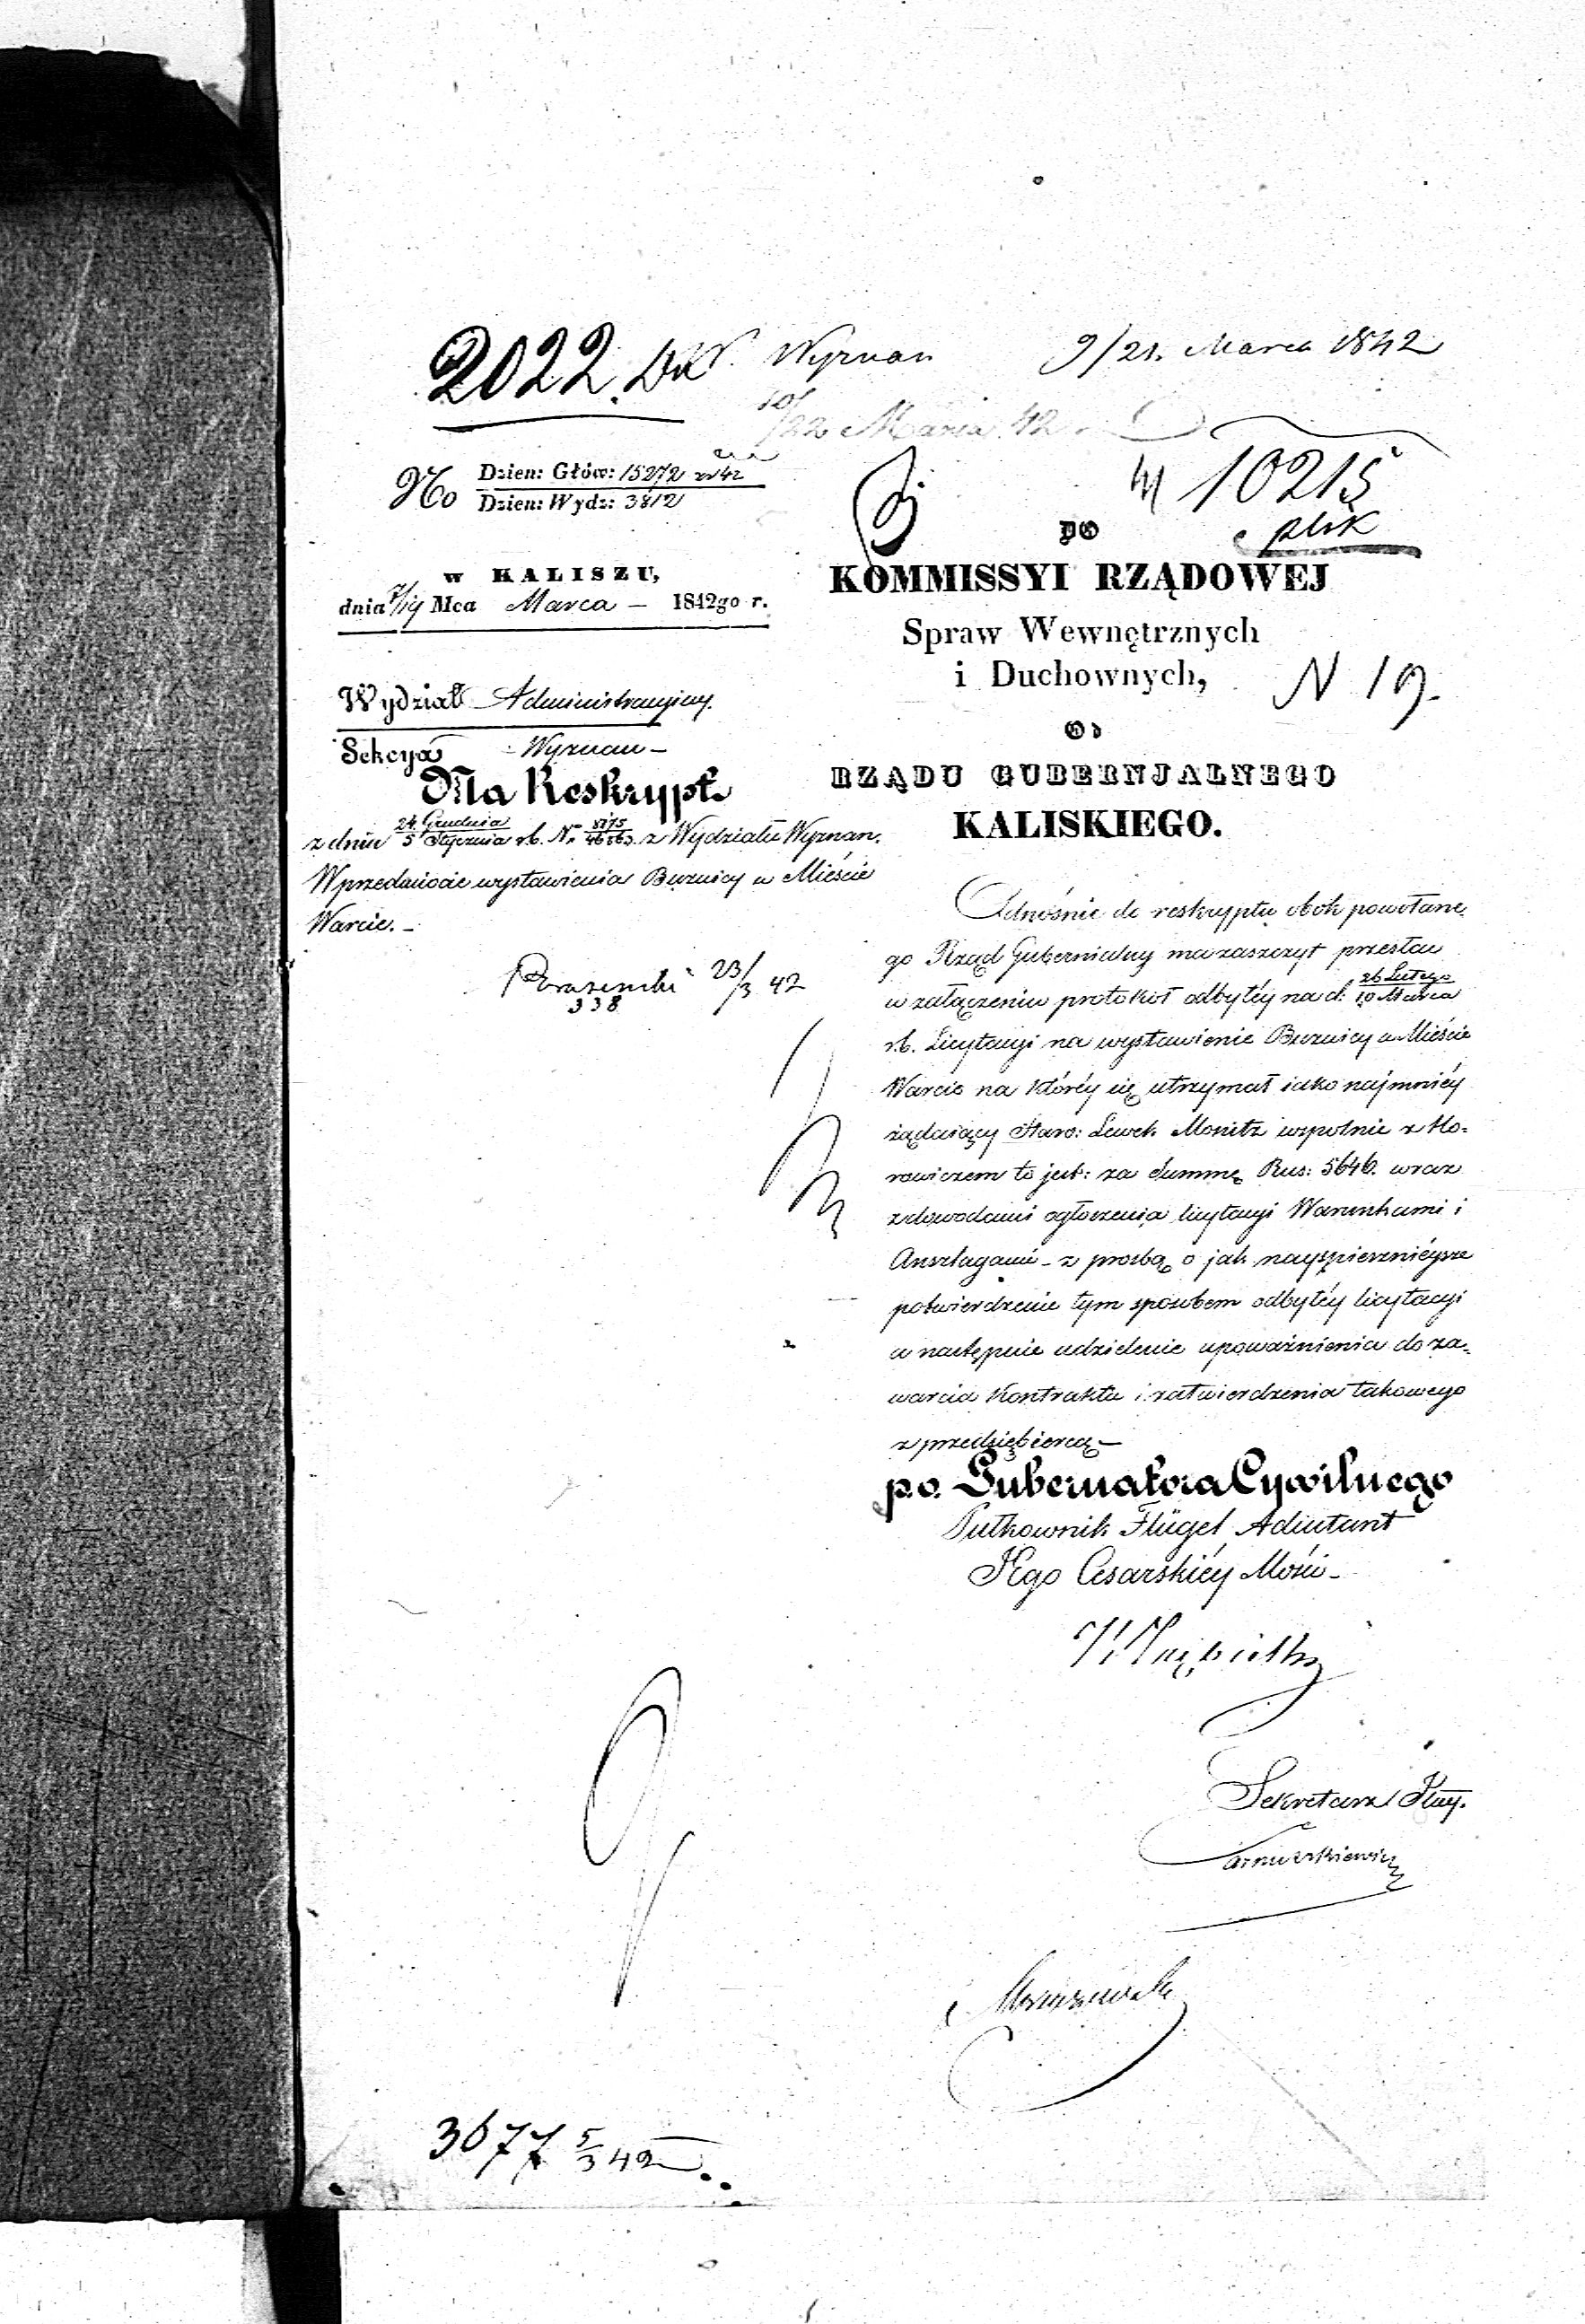 2022. Wyznań 9/21. Marca 1842
10/22 Marca 42
No Dzien: Głów: 15272
Dzien: Wydz: 3812
10215
plik
w KALISZU,
dnia 7/19 Mca Marca — 1842go r.
Wydział Administracyiny.
Sekcya Wyznań —
Na Reskrypt
z dnia 24 Grudnia / 5 Stycznia r.b. No z Wydziału Wyznań.
W przedmiocie wystawienia Bużnicy w Mieście
Warcie. —
23/3 42
338
DO
KOMMISSYI RZĄDOWEJ
Spraw Wewnętrznych
i Duchownych,
N 19.
OD
RZĄDU GUBERNJALNEGO
KALISKIEGO.
Odnośnie do reskryptu obok powołane,
go Rząd Gubernialny ma zaszczyt przesłać
w załączeniu protokół odbytéy na d: 26 Lutego / 10 Marca
r.b. Licytacyi na wystawienie Bużnicy w Mieście
Warcie na któréy się utrzymał iako naymniéy
żądaiący Staro: Lewek Monitz wspolnie z Ho-
rowiczem to jest: za Summę Rus: 5646. wraz
z dowodami ogłoszenia licytacyi Warunkami i
Anszlagami — z prozbą o jak nayspieszniéysze
potwierdzenie tym sposobem odbytéy licytacyi
a następnie udzielenie upoważnienia do za-
warcia Kontraktu i zatwierdzenia takowego
z przedsiębiercą —
p.o. Gubernatora Cywilnego
Pułkownik Flügel Adiutant
Jego Cesarskiéy Mości —
Sekretarz
3677 5/3 42